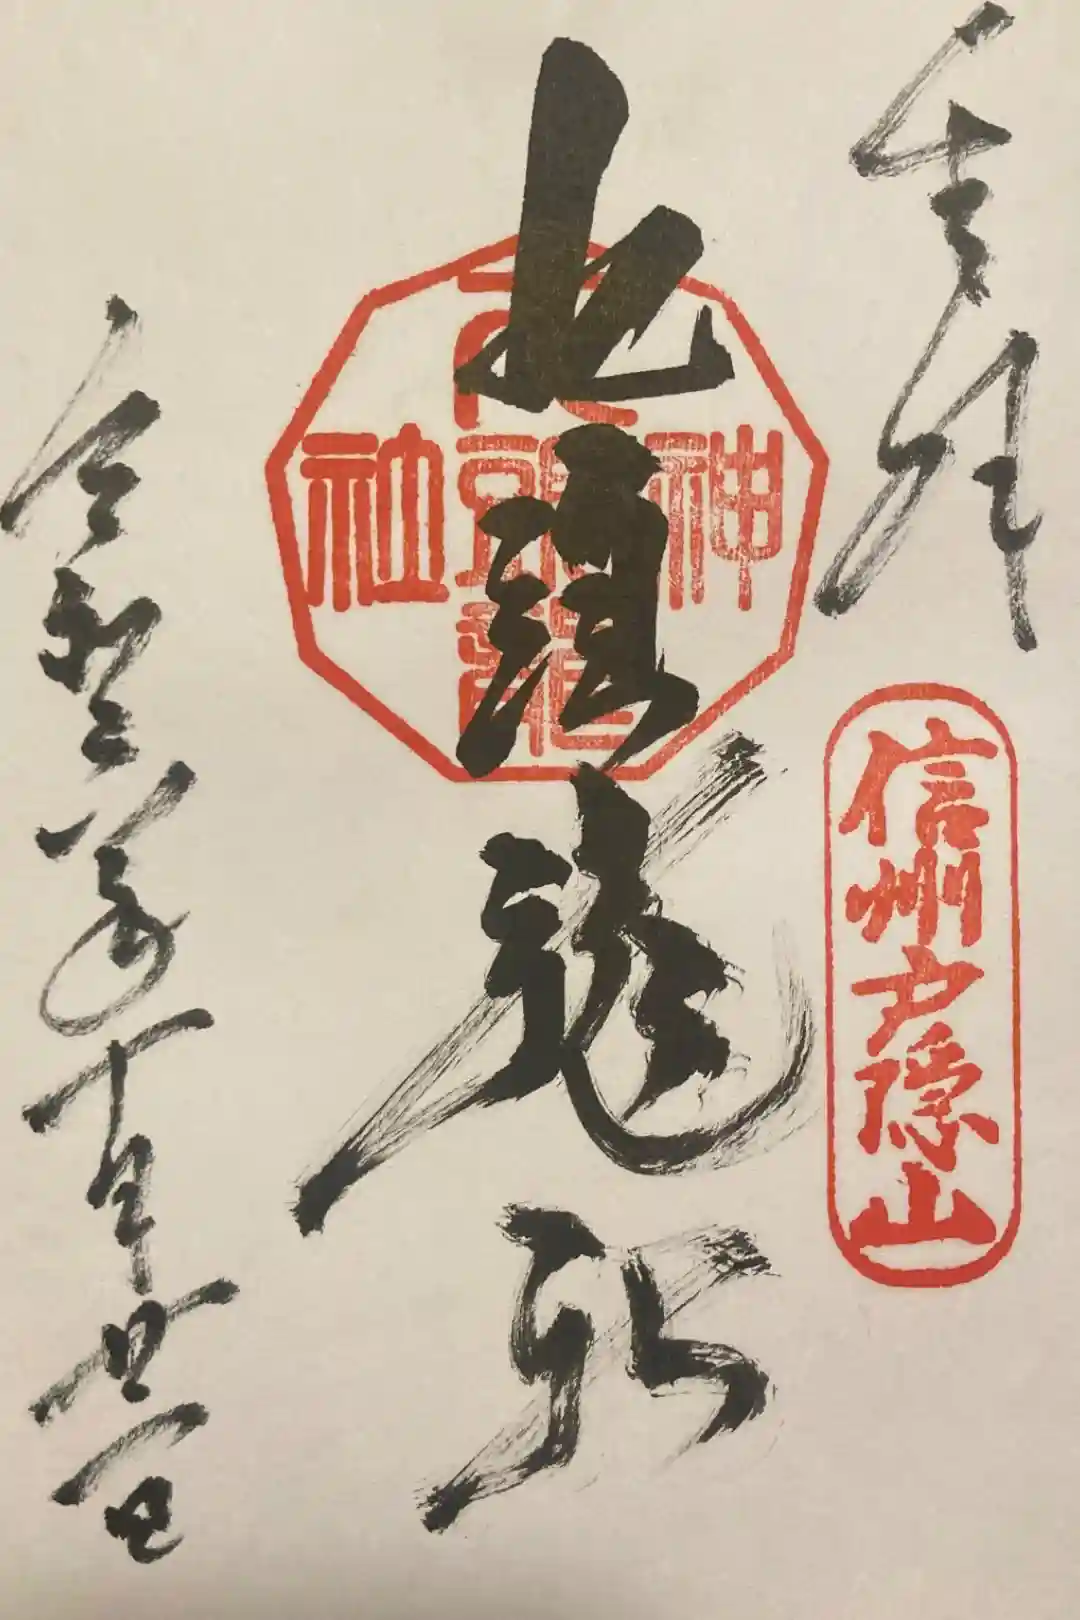 奉拝
信州戸隠山
九頭龍社
九頭龍
神社
令和年十月廿日